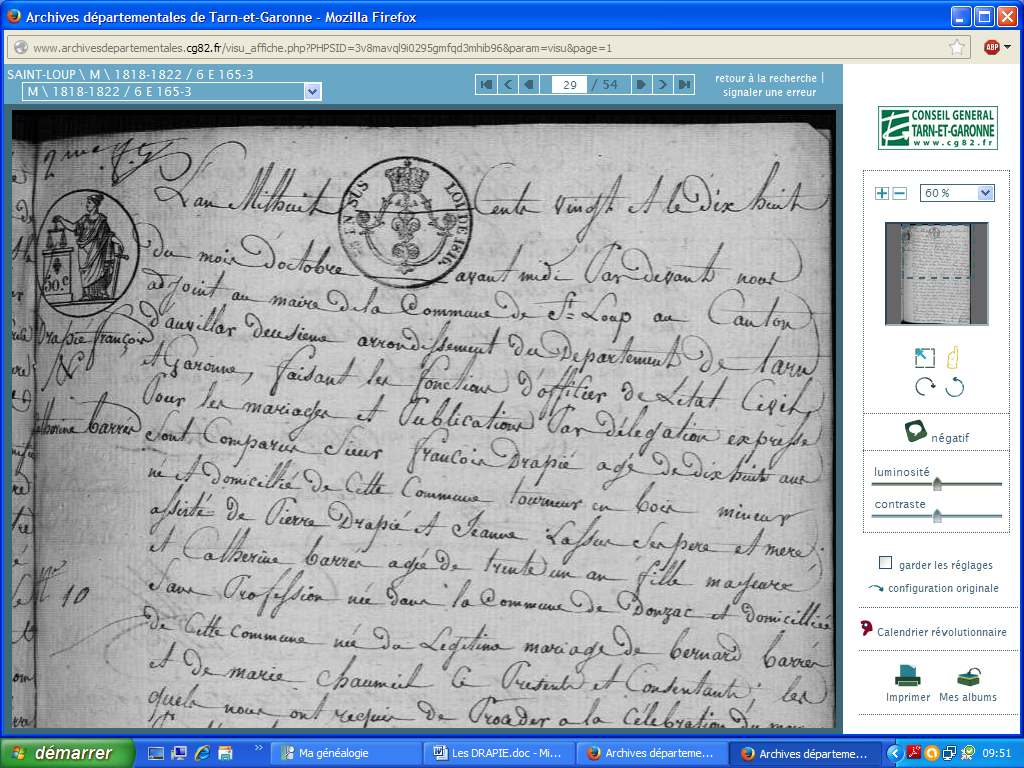 Archives départementales de Tarn-et-Garonne - Mozilla Firefox
www.archivesdepartementales.cg82.fr/visu_affiche.php?PHPSID=3v8mavql9i0295gmfqd3mhib96&param=visu&page=1
ABP
SAINT-LOUP \ M \ 1818-1822 / 6 E 165-3
M \ 1818-1822 / 6 E 165-3
29 / 54
retour à la recherche |
signaler une erreur
CONSEIL GENERAL
TARN-ET-GARONNE
www.cg82.fr
60 %
négatif
luminosité
contraste
garder les réglages
configuration originale
Calendrier révolutionnaire
Imprimer
Mes albums
EN SUS
LOI DE 1816.
50.c
Drapié françois
&
Catherine Carrere
No 10
L'an Mil huit Cents vingt et le dix huit
du mois d'octobre avant midi Par devant nous
adjoint au maire de la Commune de St Loup au Canton
d'auvillar deusieme arrondissement du Departement de tarn
et Garonne, faisant les fonctions d'officier de Letat Civil,
Pour les mariages et Publications Par délégation expresse
sont Comparus Sieur françois Drapié age de dix huit ans
né et domicillié de Cette Commune tourneur en bois mineur
assisté de Pierre Drapié et Jeanne Lassus ses pere et mere
et Catherine Carrére agée de trente un an fille majeure
Sans Profession née dans la Commune de Donzac et domicilliée
de Cette Commune née du Legitime mariage de bernard Carrére
et de marie chaumeil Ce Present et Consentant; les
quels nous ont requis de Proceder a la Célébration du
démarrer
Ma généalogie
Les DRAPIE.doc - Mi...
Archives départeme...
Archives départeme...
09:51